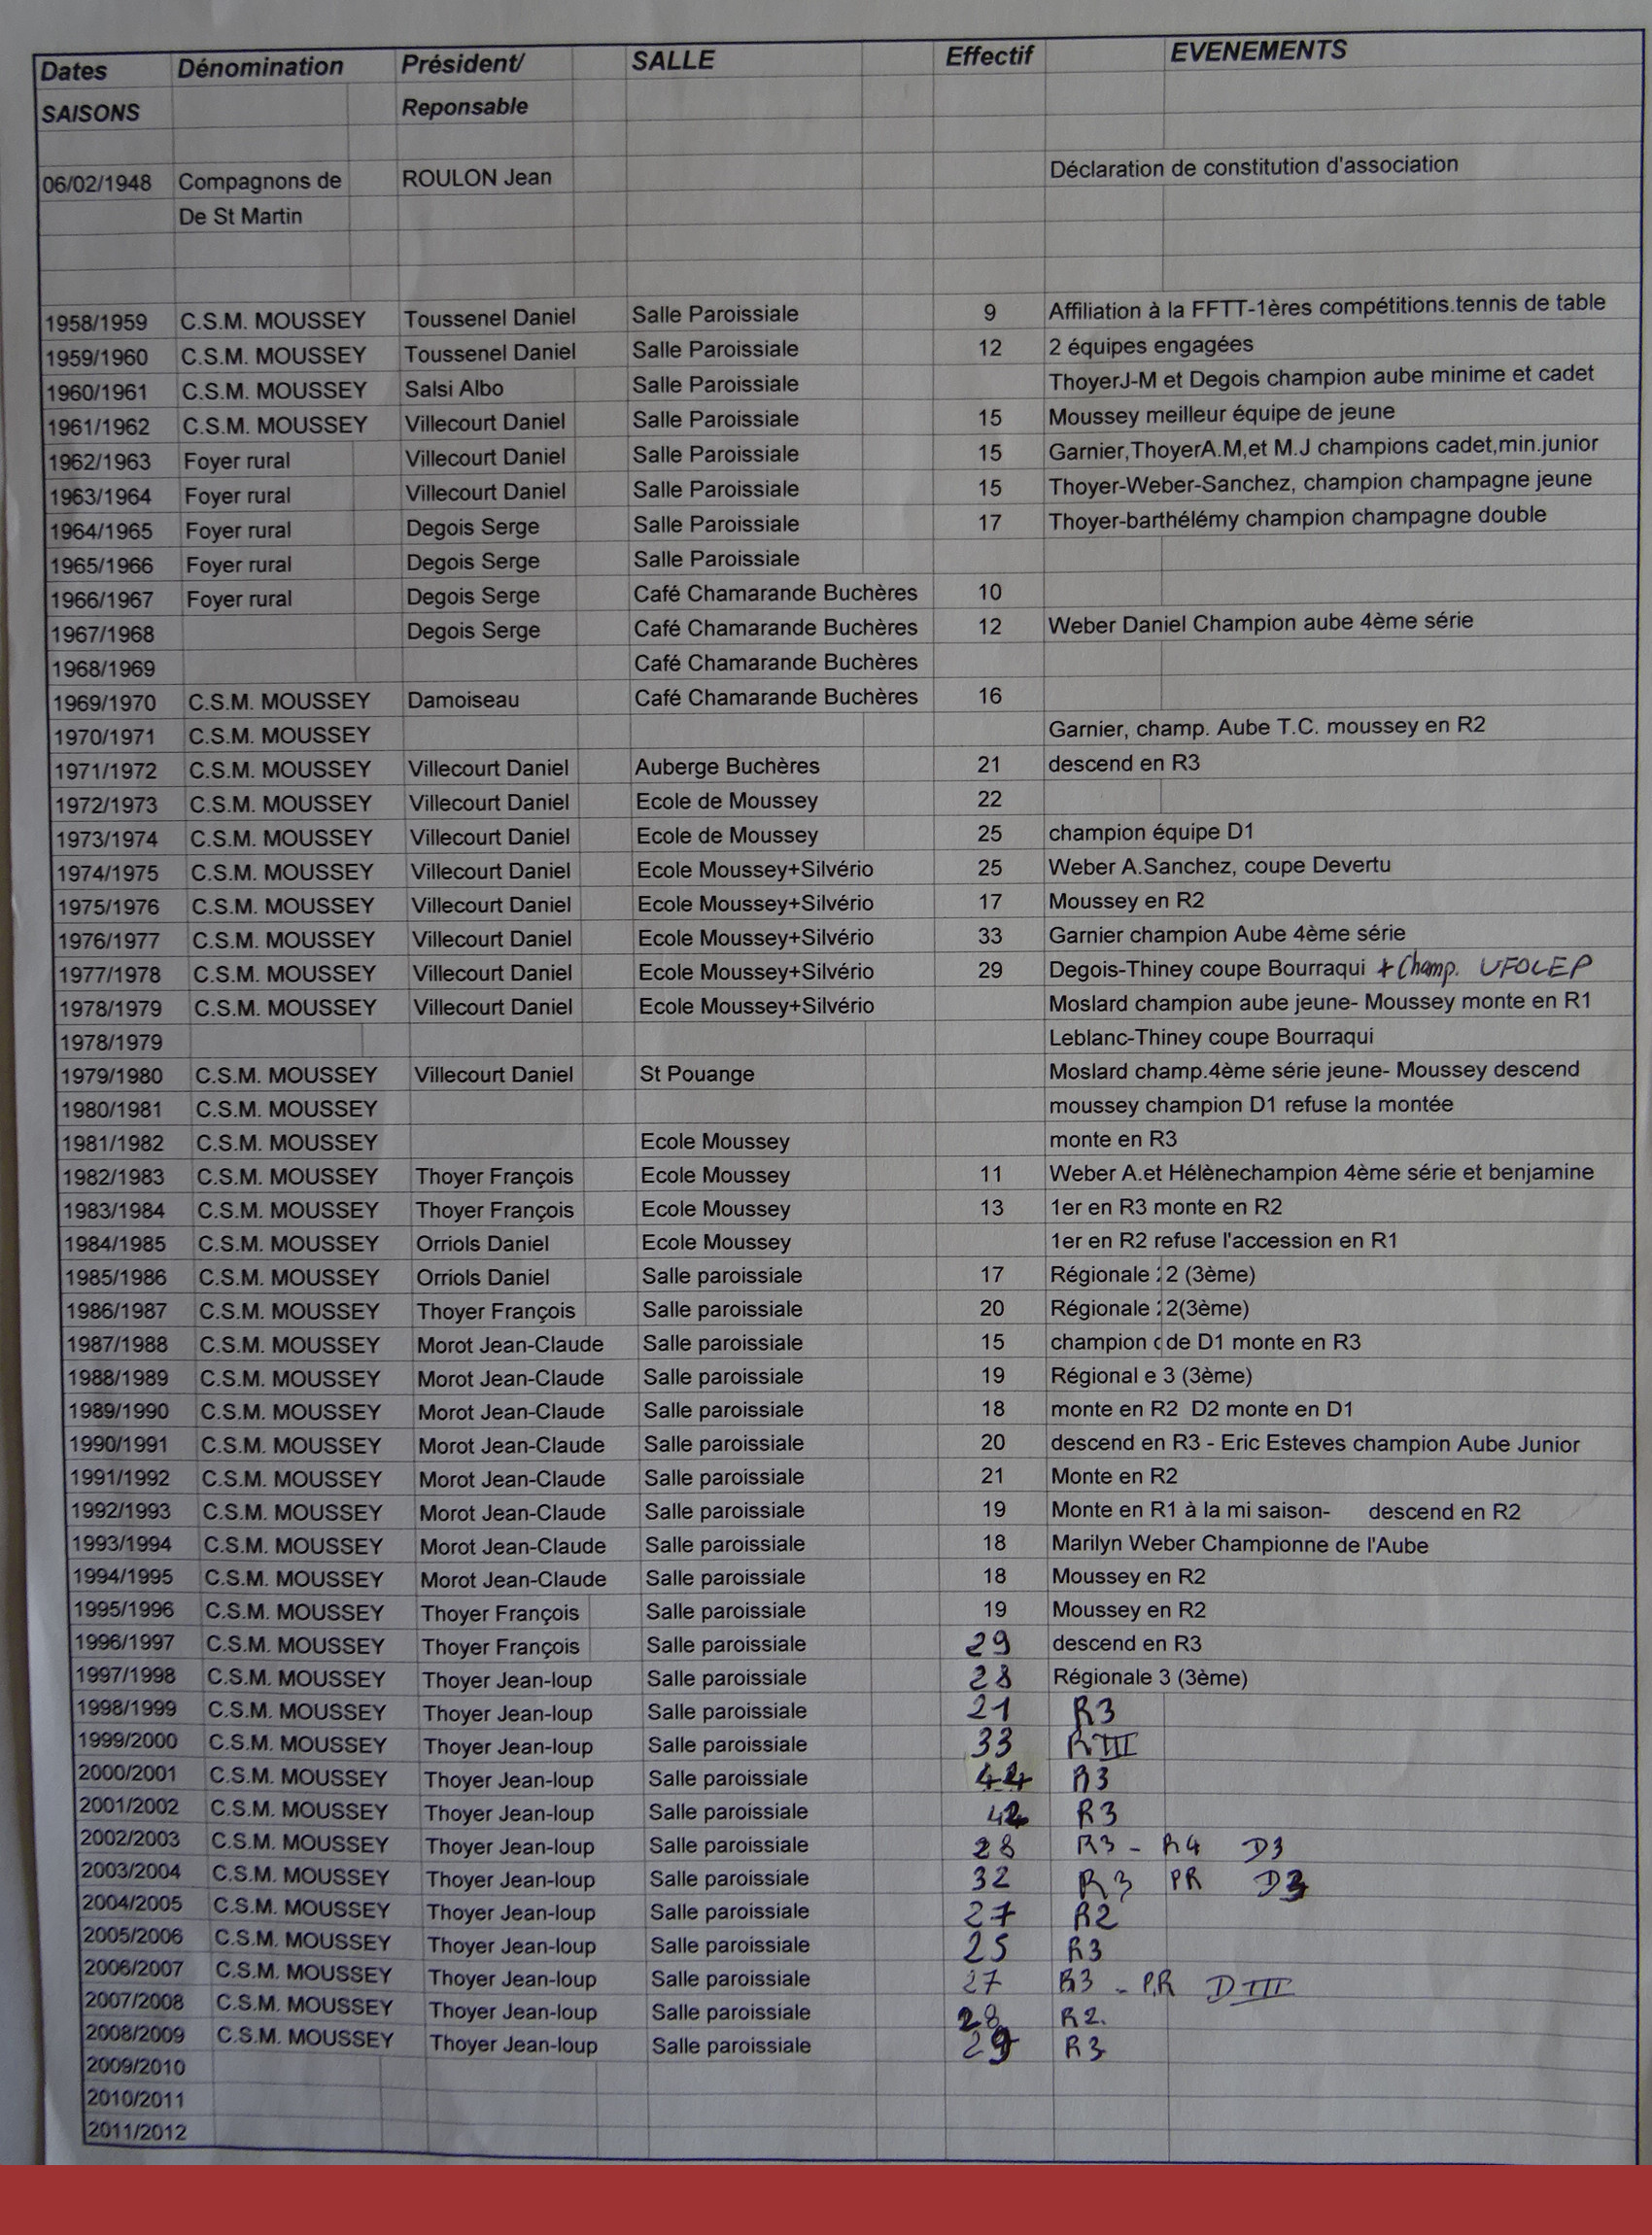 Dates Dénomination Président/ SALLE Effectif EVENEMENTS
SAISONS Reponsable
06/02/1948 Compagnons de ROULON Jean Déclaration de constitution d'association
De St Martin
1958/1959 C.S.M. MOUSSEY Toussenel Daniel Salle Paroissiale 9 Affiliation à la FFTT-1ères compétitions.tennis de table
1959/1960 C.S.M. MOUSSEY Toussenel Daniel Salle Paroissiale 12 2 équipes engagées
1960/1961 C.S.M. MOUSSEY Salsi Albo Salle Paroissiale ThoyerJ-M et Degois champion aube minime et cadet
1961/1962 C.S.M. MOUSSEY Villecourt Daniel Salle Paroissiale 15 Moussey meilleur équipe de jeune
1962/1963 Foyer rural Villecourt Daniel Salle Paroissiale 15 Garnier,ThoyerA.M,et M.J champions cadet,min.junior
1963/1964 Foyer rural Villecourt Daniel Salle Paroissiale 15 Thoyer-Weber-Sanchez, champion champagne jeune
1964/1965 Foyer rural Degois Serge Salle Paroissiale 17 Thoyer-barthélémy champion champagne double
1965/1966 Foyer rural Degois Serge Salle Paroissiale
1966/1967 Foyer rural Degois Serge Café Chamarande Buchères 10
1967/1968 Degois Serge Café Chamarande Buchères 12 Weber Daniel Champion aube 4ème série
1968/1969 Café Chamarande Buchères
1969/1970 C.S.M. MOUSSEY Damoiseau Café Chamarande Buchères 16
1970/1971 C.S.M. MOUSSEY Garnier, champ. Aube T.C. moussey en R2
1971/1972 C.S.M. MOUSSEY Villecourt Daniel Auberge Buchères 21 descend en R3
1972/1973 C.S.M. MOUSSEY Villecourt Daniel Ecole de Moussey 22
1973/1974 C.S.M. MOUSSEY Villecourt Daniel Ecole de Moussey 25 champion équipe D1
1974/1975 C.S.M. MOUSSEY Villecourt Daniel Ecole Moussey+Silvério 25 Weber A.Sanchez, coupe Devertu
1975/1976 C.S.M. MOUSSEY Villecourt Daniel Ecole Moussey+Silvério 17 Moussey en R2
1976/1977 C.S.M. MOUSSEY Villecourt Daniel Ecole Moussey+Silvério 33 Garnier champion Aube 4ème série
1977/1978 C.S.M. MOUSSEY Villecourt Daniel Ecole Moussey+Silvério 29 Degois-Thiney coupe Bourraqui + Champ. UFOLEP
1978/1979 C.S.M. MOUSSEY Villecourt Daniel Ecole Moussey+Silvério Moslard champion aube jeune- Moussey monte en R1
1978/1979 Leblanc-Thiney coupe Bourraqui
1979/1980 C.S.M. MOUSSEY Villecourt Daniel St Pouange Moslard champ.4ème série jeune- Moussey descend
1980/1981 C.S.M. MOUSSEY moussey champion D1 refuse la montée
1981/1982 C.S.M. MOUSSEY Ecole Moussey monte en R3
1982/1983 C.S.M. MOUSSEY Thoyer François Ecole Moussey 11 Weber A.et Hélènechampion 4ème série et benjamine
1983/1984 C.S.M. MOUSSEY Thoyer François Ecole Moussey 13 1er en R3 monte en R2
1984/1985 C.S.M. MOUSSEY Orriols Daniel Ecole Moussey 1er en R2 refuse l'accession en R1
1985/1986 C.S.M. MOUSSEY Orriols Daniel Salle paroissiale 17 Régionale 2 (3ème)
1986/1987 C.S.M. MOUSSEY Thoyer François Salle paroissiale 20 Régionale 2(3ème)
1987/1988 C.S.M. MOUSSEY Morot Jean-Claude Salle paroissiale 15 champion de D1 monte en R3
1988/1989 C.S.M. MOUSSEY Morot Jean-Claude Salle paroissiale 19 Régional e 3 (3ème)
1989/1990 C.S.M. MOUSSEY Morot Jean-Claude Salle paroissiale 18 monte en R2 D2 monte en D1
1990/1991 C.S.M. MOUSSEY Morot Jean-Claude Salle paroissiale 20 descend en R3 - Eric Esteves champion Aube Junior
1991/1992 C.S.M. MOUSSEY Morot Jean-Claude Salle paroissiale 21 Monte en R2
1992/1993 C.S.M. MOUSSEY Morot Jean-Claude Salle paroissiale 19 Monte en R1 à la mi saison- descend en R2
1993/1994 C.S.M. MOUSSEY Morot Jean-Claude Salle paroissiale 18 Marilyn Weber Championne de l'Aube
1994/1995 C.S.M. MOUSSEY Morot Jean-Claude Salle paroissiale 18 Moussey en R2
1995/1996 C.S.M. MOUSSEY Thoyer François Salle paroissiale 19 Moussey en R2
1996/1997 C.S.M. MOUSSEY Thoyer François Salle paroissiale 29 descend en R3
1997/1998 C.S.M. MOUSSEY Thoyer Jean-loup Salle paroissiale 28 Régionale 3 (3ème)
1998/1999 C.S.M. MOUSSEY Thoyer Jean-loup Salle paroissiale 21 R3
1999/2000 C.S.M. MOUSSEY Thoyer Jean-loup Salle paroissiale 33 RIII
2000/2001 C.S.M. MOUSSEY Thoyer Jean-loup Salle paroissiale R3
2001/2002 C.S.M. MOUSSEY Thoyer Jean-loup Salle paroissiale 42 R3
2002/2003 C.S.M. MOUSSEY Thoyer Jean-loup Salle paroissiale 28 R3 - R4 D3
2003/2004 C.S.M. MOUSSEY Thoyer Jean-loup Salle paroissiale 32 R3 PR D3
2004/2005 C.S.M. MOUSSEY Thoyer Jean-loup Salle paroissiale 27 R2
2005/2006 C.S.M. MOUSSEY Thoyer Jean-loup Salle paroissiale 25 R3
2006/2007 C.S.M. MOUSSEY Thoyer Jean-loup Salle paroissiale 27 R3 - PR DIII
2007/2008 C.S.M. MOUSSEY Thoyer Jean-loup Salle paroissiale 28 R2.
2008/2009 C.S.M. MOUSSEY Thoyer Jean-loup Salle paroissiale 29 R3
2009/2010
2010/2011
2011/2012